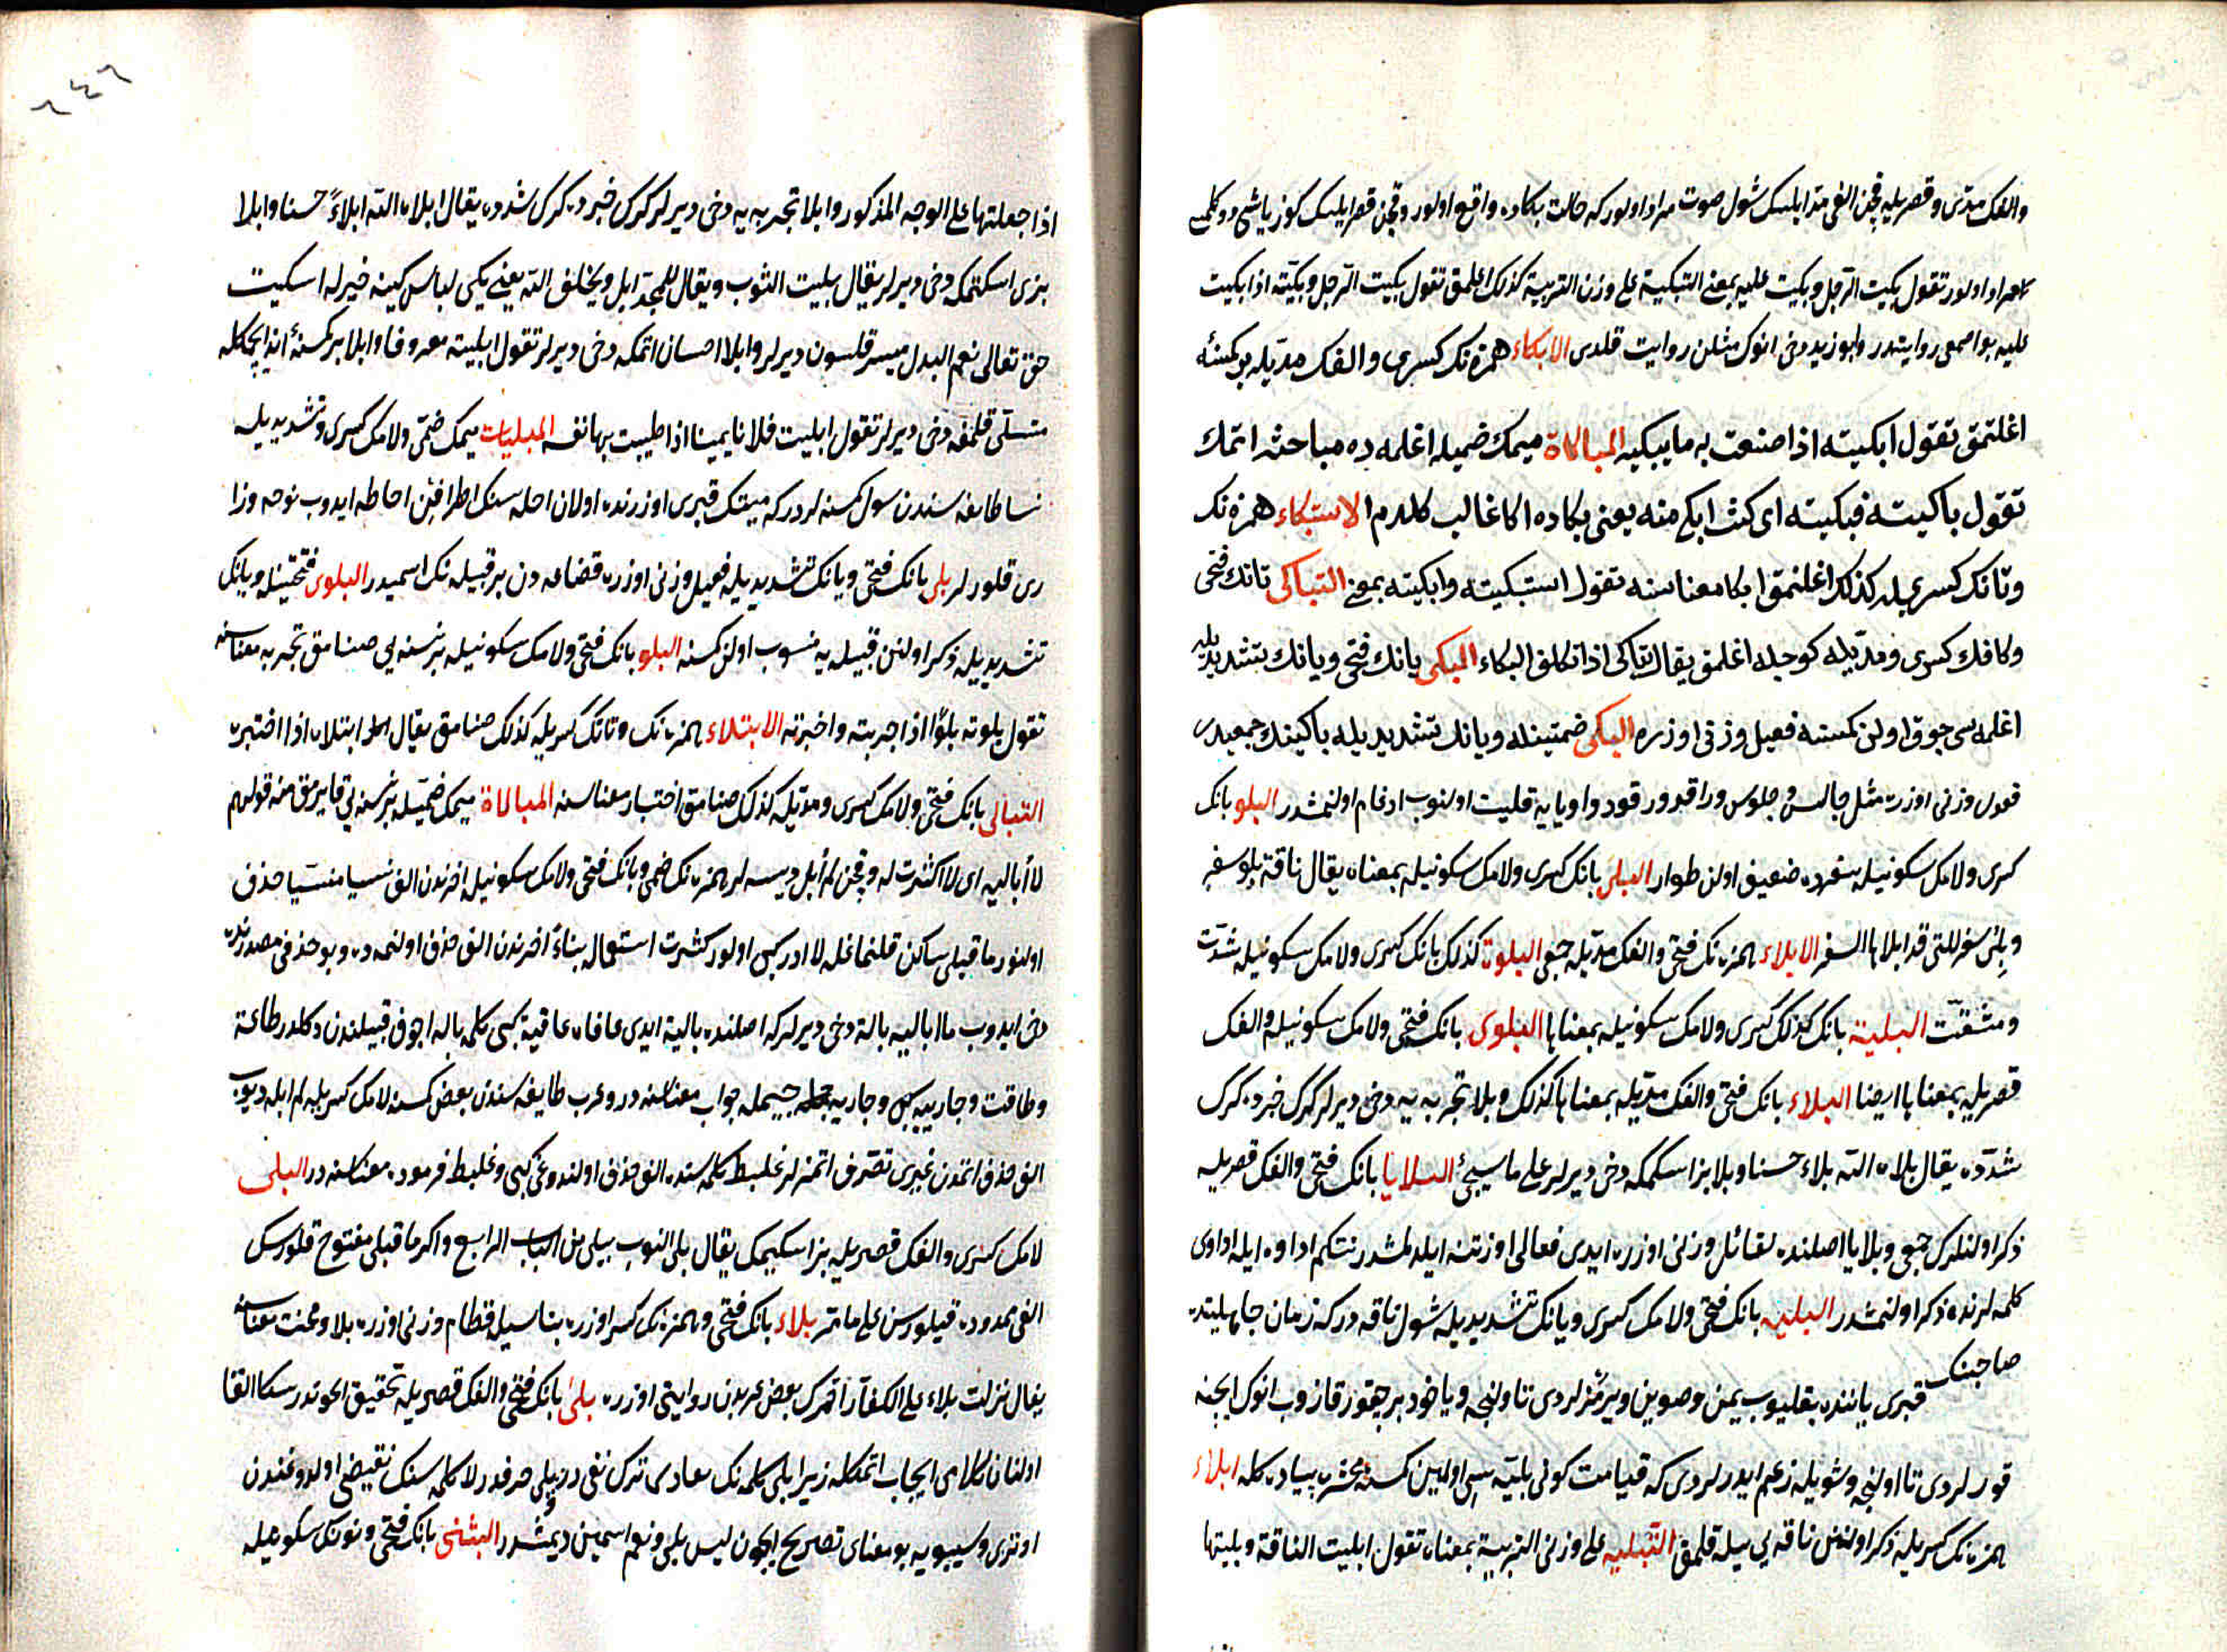 والفك مدى و قصريله قچن الفى مد ايلسك شول صوت مراد اولور كه حالت بكاده واقع اولور و قچن قصر ايلسك كوز ياشى دوكلمك
مراد اولور تقول بكيت الرجل وبكيت عليه بمعنى التبكية على وزن التربية كذلك اغلمق تقول بكيت الرجل وبكيته اذا بكيت
عليه بو اصمعى روايتدر وابو زيد دخى انوك مثلن روايت قلدى الابكاء همزه نك كسرى والفك مديله بر كمسنه
اغلتمق تقول ابكيته اذا صنعت به ما يبكيه المباكاة ميمك ضميله اغلمه ده مباحثه اتمك
تقول باكيته فبكيته اى كنت ابكى منه يعنى بكاده اكا غالب كلدم الاستبكاء همزه نك
وتانك كسريله كذلك اغلتمق ابكا معناسنه تقول استبكيته وابكيته بمعنى التباكى تانك فتحى
وكافك كسرى ومديله كوجله اغلمق يقال تباكى اذا تكلف البكاء البكى بانك فتحى ويانك تشديديله
اغلمه سى چوق اولن كمسنه فعيل وزنى اوزره البكى ضمتينله ويانك تشديديله باكينك جمعيدر
فعول وزنى اوزره مثل جالس وجلوس وراقد ورقود واو يايه قلب اولنوب ادغام اولنمشدر البلو بانك
كسرى ولامك سكونيله سفرده ضعيف اولن طوار البلى بانك كسرى ولامك سكونيله بمعناه يقال ناقة بلو سفر
وبلى سفر للتى قد ابلاها السفر الابلاء همزه نك فتحى والفك مديله جمعى البلوة كذلك بانك كسرى ولامك سكونيله شدت
ومشقت البلية بانك كذلك كسرى ولامك سكونيله بمعناها البلوى بانك فتحى ولامك سكونيله والفك
قصريله بمعناها ايضا البلاء بانك فتحى والفك مديله بمعناها كذلك وبلا تجربه يه دخى ديرلر كرك خيرده كرك
شدّده يقال بلاه الله بلاء حسنا وبلا بزاسكمكه دخى ديرلر على ما سيجئ البلايا بانك فتحى والفك قصريله
ذكر اولنلرك جمعى وبلايا اصلنده فعائل وزنى اوزره ايدى فعالى اوزرنه ايلدلمشدر نتكم اداوه ايله اداوى
كلمه لرنده ذكر اولنمشدر البلية بانك فتحى ولامك كسرى ويانك تشديديله شول ناقه در كه زمان جاهليتده
صاحبنك
قبرى ياننده بغليوب يمن وصوين ويرمزلردى تا اولنجه وياخود بر چقور قازوب انوك ايچنه
قورلردى تا اولنجه وشويله زعم ايدرلردى كه قيامت كونى بليه سى اولمين كمسنه محشره پياده كله ابلاء
همزه نك كسريله ذكر اولنن ناقه يى بيله قلمق التبليه على وزن التربية بمعناه تقول ابليت الناقة وبليتها
٦٤٦
اذا جعلتها على الوجه المذكور وابلا تجربه يه دخى ديرلر كرك خيرده كرك شدده يقال ابلاه الله ابلاءً حسنا وابلا
بزى اسكتمكه دخى ديرلر يقال بليت الثوب ويقال للمجد ابل ويخلف الله يعنى يكى لباس كينه خير له اسكيت
حق تعالى نعم البدل ميسر قلسون ديرلر وابلا احسان اتمكه دخى ديرلر تقول ابليته معروفا وابلا بر كمسنه اند ايچمكله
متسلى قلمغه دخى ديرلر تقول ابليت فلانا يمينا اذا طيبت بها نفسه المبليات ميمك ضمى ولامك كسرى وتشديديله
نسا طايفه سندن شول كمسنه لردر كه ميتك قبرى اوزرنده اولان احله سنك اطرافين احاطه ايدوب نوحه وزا
رى قلورلر بلى بانك فتحى ويانك تشديديله فعيل وزنى اوزره قضاعه دن بر قبيله نك اسميدر البلوى فتحتينله ويانك
تشديديله ذكر اولنن قبيله يه منسوب اولن كمسنه البلو بانك فتحى ولامك سكونيله بر نسنه يى صنامق تجربه معناسنه
تقول بلوته بلوًا اذا جربته واختبرته الابتلاء همزه نك وتانك كسريله كذلك صنامق يقال ابتلاه اذا اختبره
التبالى بانك فتحى ولامك كسرى ومديله كذلك صنامق اختبار معناسنه المبالاة ميمك ضميله بر نسنه يى قايرمق منه قولهم
لا أباليه اى لا اكترث له وقچن لم أبل ديسه لر همزه نك ضمى وبانك فتحى ولامك سكونيله اخرندن الف نسيا منسيا حذف
اولنور ما قبلى ساكن قلنمغله لا ادر كبى اولور كثرت استعماله بناءً اخرندن الف حذف اولنمده وبو حذفى مصدرنده
دخى ايدوب ما اباليه بالة دخى ديرلر كه اصلنده بالية ايدى عافاه عافية كبى كلمه باله اجوف قبيلندن دكلدر طاعة
وطاقت وجابه كبى وجابه جيمله جواب معناسنه در وعرب طايفه سندن بعض كمسنه لامك كسريله لم ابله ديوب
الف حذف اتمدن غيرى تصرف اتمزلر غليط كلمه سنده الف حذف اولندوغى كبى وغليط فرموده معناسنه در البلى
لامك كسرى والفك قصريله بزاسكيمك يقال بلى الثوب يبلى من الباب الرابع واكر ما قبلى مفتوح قلورسك
الفى ممدوده قيلورسن على ما مر بلاء بانك فتحى وهمزه نك كسر اوزره بناسيله قطام وزنى اوزره بلا ومحنت معناسنه
يقال نزلت بلاء على الكفار احمرك بعض عربدن روايتى اوزره بلى بانك فتحى والفك قصريله تحقيق ايچوندر سكا القا
اولنان كلامى ايجاب اتمكله زيرا بلى كلمه نك معادى ترك نفى در وبلى حرفدر لا كلمه سنك نقيضى اولدوغندن
اوترى وسيبويه بو معناى تصريح ايچون ليس بلى ونعم اسمين ديمشدر البثنى بانك فتحى ونونك سكونيله